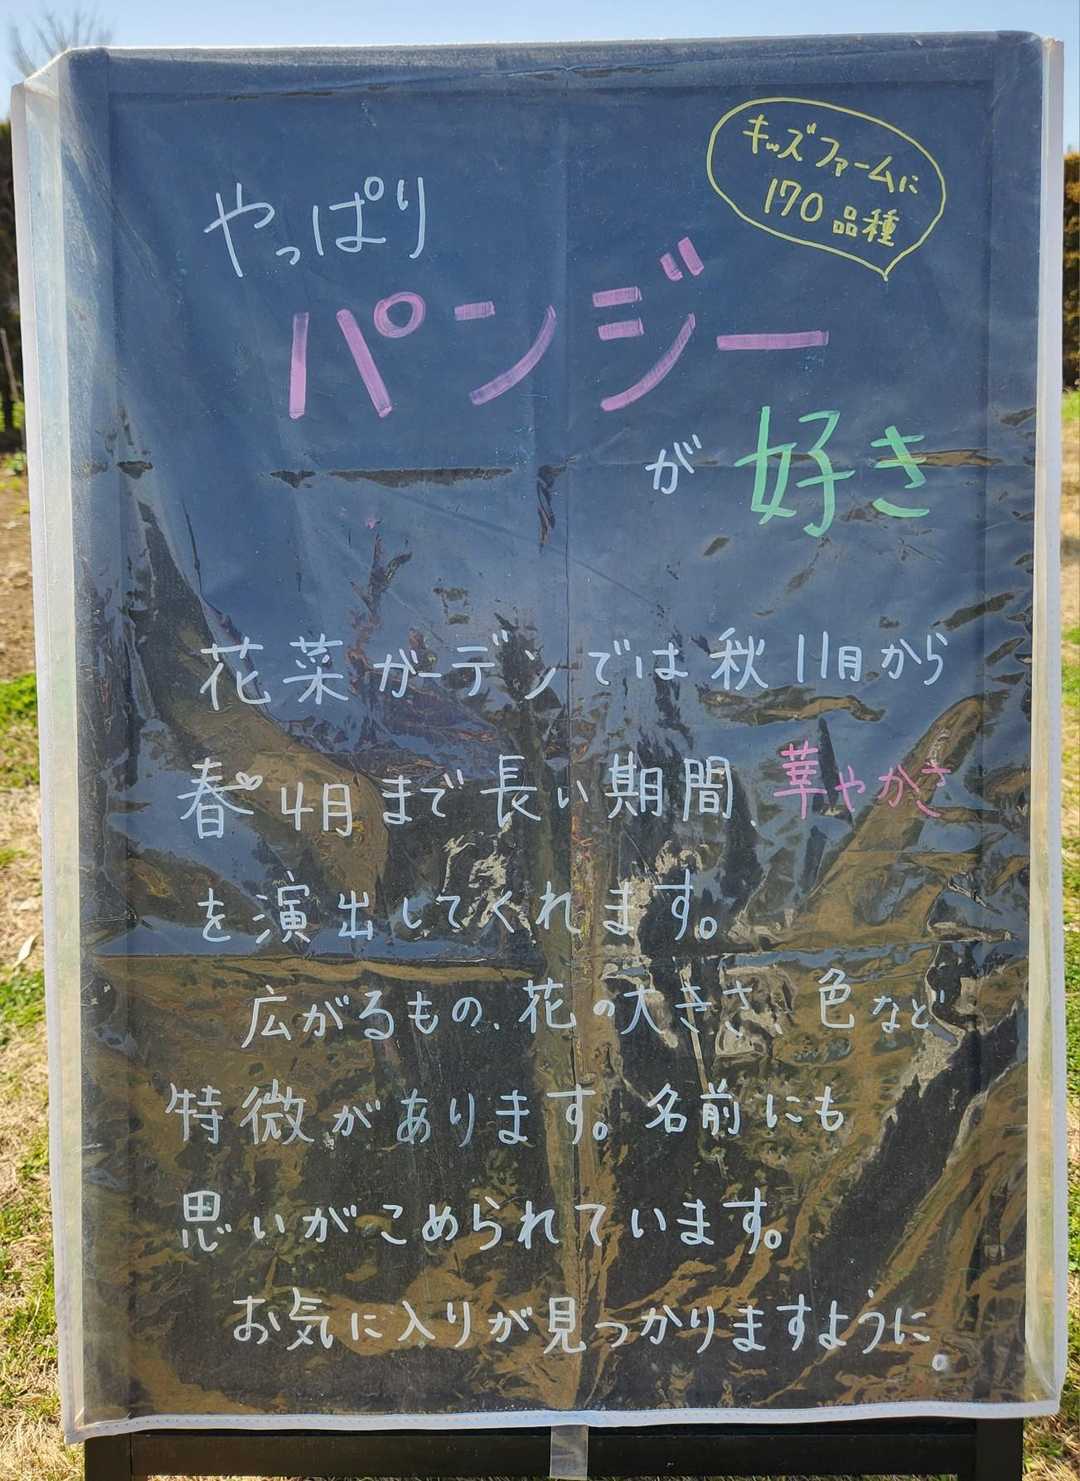 キッズファームに
170品種
やっぱり
パンジー
が好き
花菜ガーデンでは秋11月から
春4月まで長い期間、華やかさ
を演出してくれます。
広がるもの、花の大きさ、色など
特徴があります。名前にも
思いがこめられています。
お気に入りが見つかりますように。